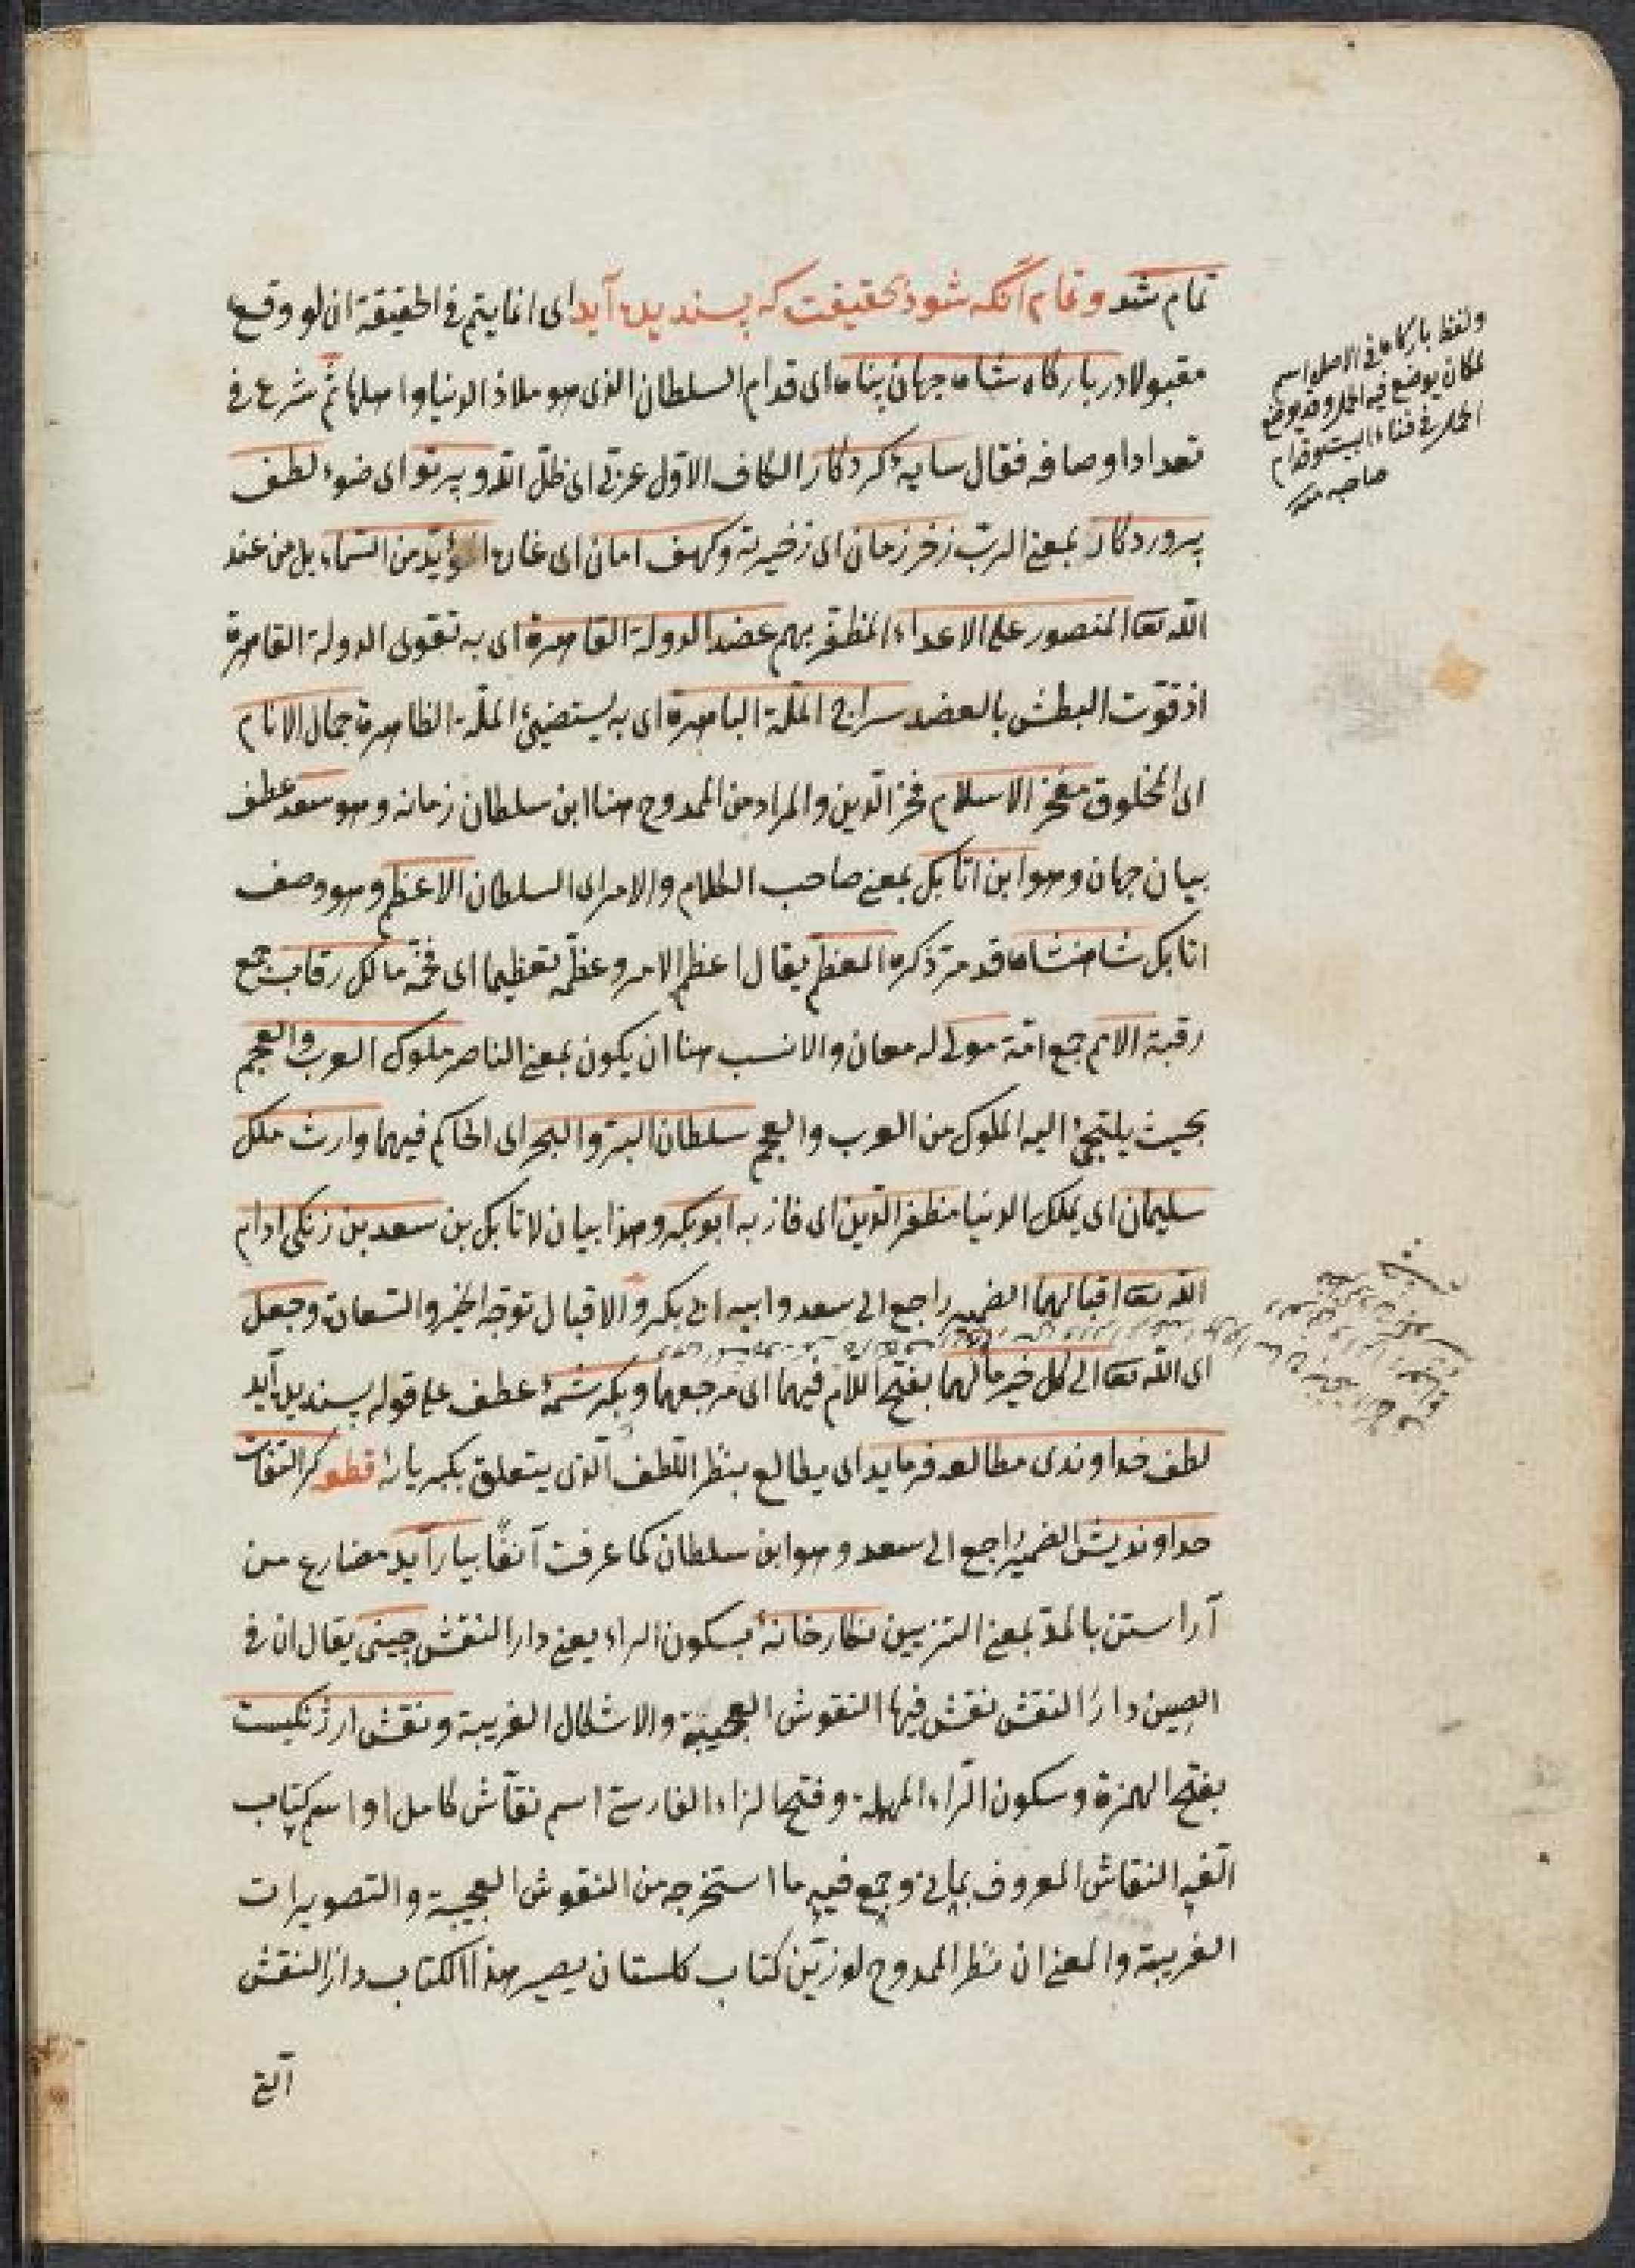 تمام شد وتمام آنگه شود بحقیقت که پسندیده آید ای انما یتم فی الحقیقة ان لو وقع
مقبولا در بارگاه شاه جهان پناه ای قدام السلطان الذی هو ملاذ الدنیا واهلها ثم شرع فی
تعداد اوصافه فقال سایه کردگار الکاف الاول عربی ای ظل الله و پرتو ای ضوء لطف
پروردگار بمعنی الرب زخر زمان ای زخیرته وکهف امان ای غار المؤید من السماء بل من عند
الله تعا المنصور علی الاعداء المظفر بهم عضد الدولة القاهرة ای به تقوی الدولة القاهرة
اذ قوت البطش بالعضد سراج الملة الباهرة ای به یستضیئ الملة الظاهرة جمال الانام
ای المخلوق مفخر الاسلام فخر الدین والمراد من الممدوح هنا ابن سلطان زمانه وهو سعد عطف
بیان جهان وهو ابن اتابک بمعنی صاحب الکلام والامر ای السلطان الاعظم وهو وصف
اتابک شاهنشاه قد مر ذکره المعظم یقال اعظم الامر وعظمه تعظیما ای فخمه مالک رقاب جمع
رقبة الامم جمع امة مولی له معان والانسب هنا ان یکون بمعنی الناصر ملوک العرب والعجم
بحیث یلتجئ الیه الملوک من العرب والعجم سلطان البر والبحر ای الحاکم فیهما وارث ملک
سلیمان ای یملک الدنیا مظفر الدین ای فاز به ابو بکر وهذا بیان لاتابک بن سعد بن زنکی ادام
الله تعا اقبالهما الضمیر راجع الی سعد وابیه ابی بکر والاقبال توجه الخیر والسعادت وجعل
ای الله تعا الی کل خیر مآلهما بفتح اللام فیهما ای مرجعهما وبکرشمهٔ عطف علی قوله پسندیده آید
لطف خداوندی مطالعه فرماید ای یطالع بنظر اللطف الذی یتعلق بکبریائه قطعه کر التفات
خداوندیش الضمیر راجع الی سعد وهو ابن سلطان کما عرفت آنفا بیاراید مضارع من
آراستن بالمد بمعنی التزیین نکارخانهٔ بسکون الراء یعنی دار النقش چینی یقال ان فی
الصین دار النقش نقش فیها النقوش العجیبة والاشکال الغریبة ونقش ارژنکیست
بفتح الهمزة وسکون الراء المهملة وفتح الزاء الفارسی اسم نقاش کامل او اسم کتاب
الفه النقاش المعروف بمانی وجمع فیه ما استخرجه من النقوش العجیبة والتصویرات
الغریبة والمعنی ان نظر الممدوح لو زین کتاب کلستان یصیر هذا الکتاب دار النقش
ولفظ بارگاه فی الاصل اسم
لمکان یوضع فیه الحمل وقد یوضع
الحمل فی فناء البیت وقدام
صاحبه منه